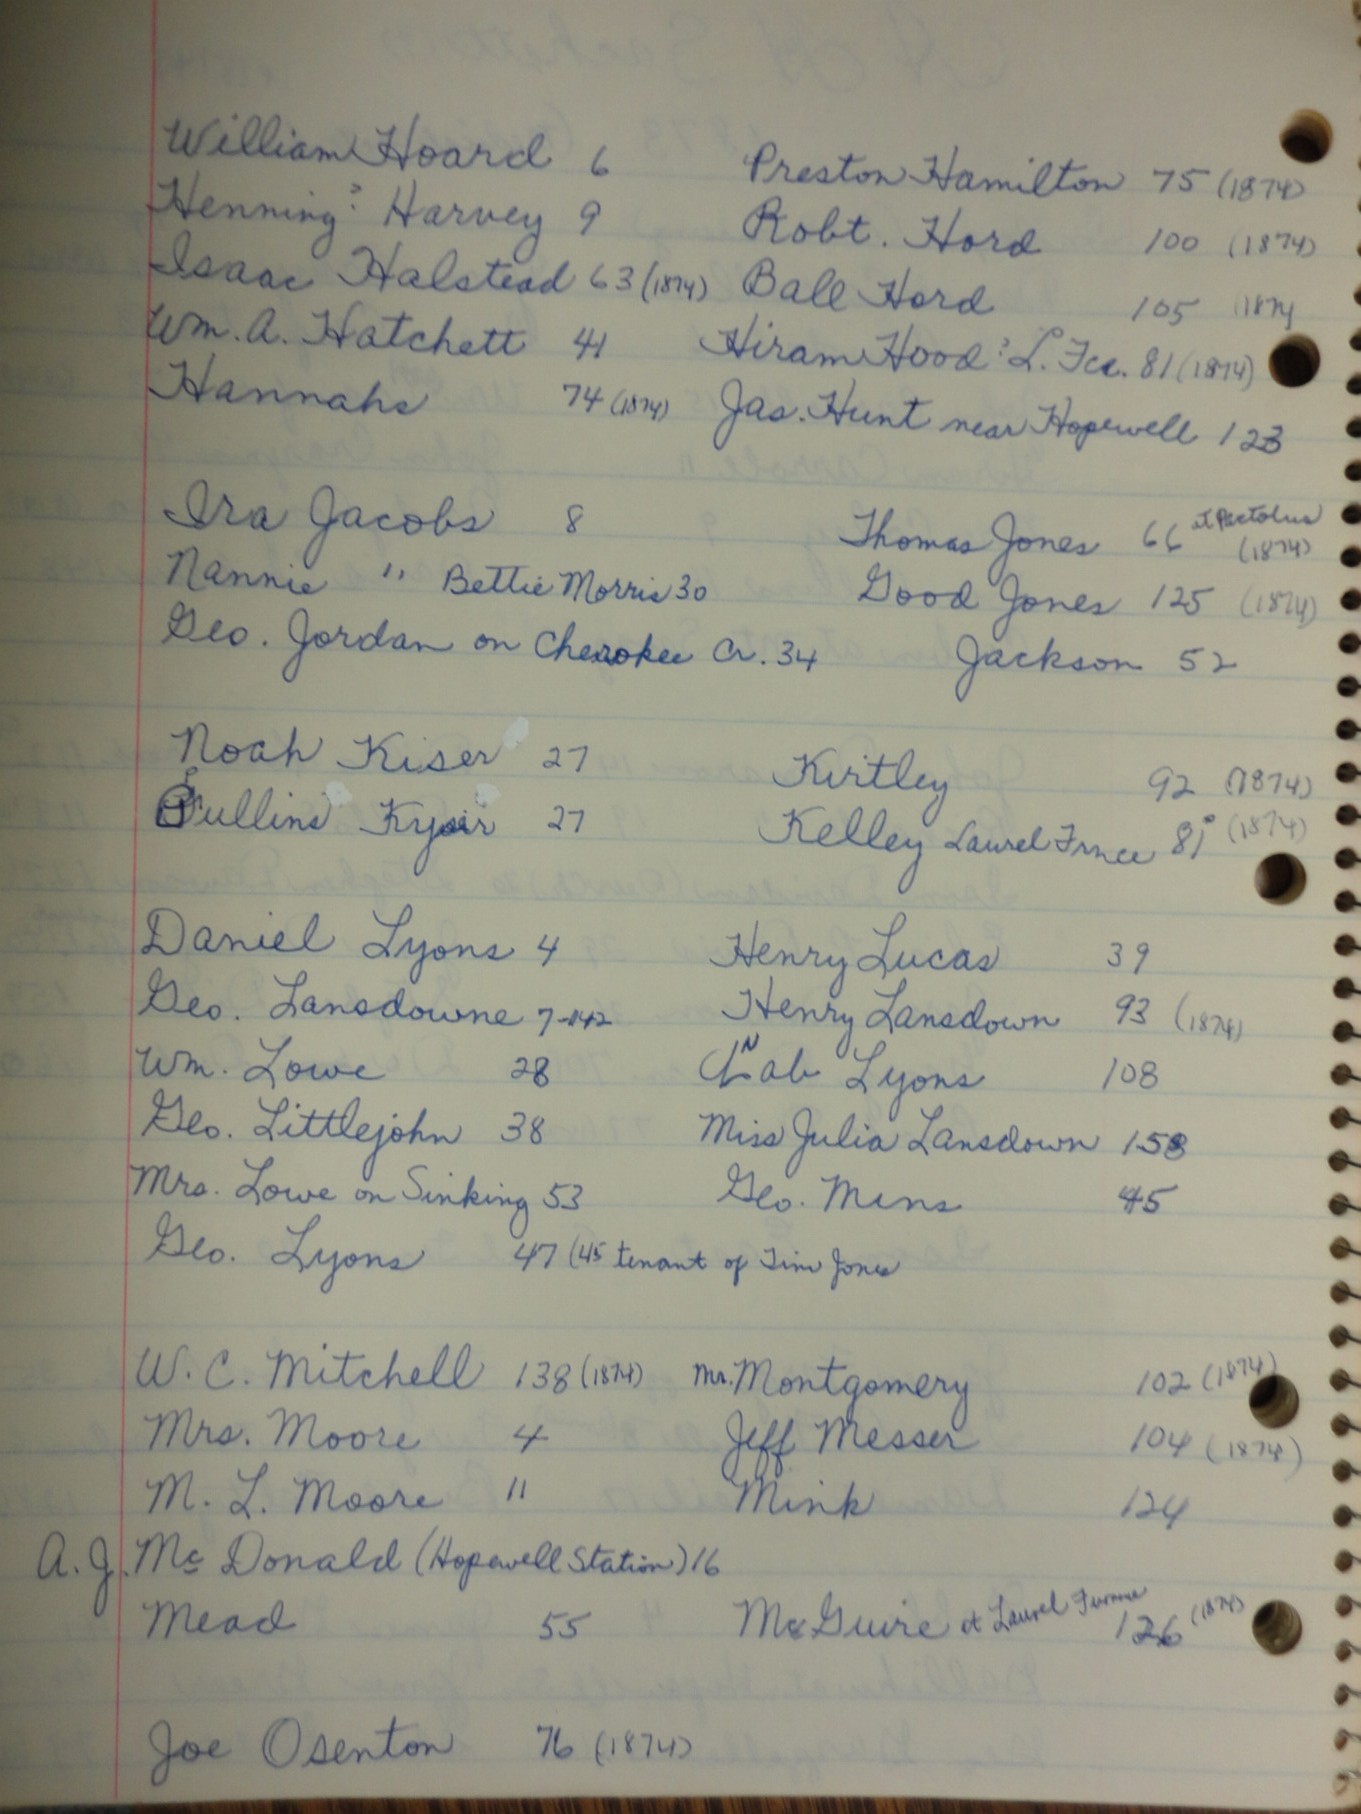 William Hoard 6 Preston Hamilton 75 (1874)
Henning? Harvey 9 Robt. Hord 100 (1874)
Isaac Halstead 63 (1874) Ball Hord 105 1874
Wm. A. Hatchett 41 Hiram Hood? L. Fce. 81 (1874)
Hannahs 74 (1874) Jas. Hunt near Hopewell 123
Ira Jacobs 8 Thomas Jones 66 at Pactolus (1874)
Nannie " Bettie Morris 30 Good Jones 125 (1874)
Geo. Jordan on Cherokee Cr. 34 Jackson 52
Noah Kiser 27 Kirtley 92 (1874)
Pullins 27 Kelley Laurel Frnce 81 (1874)
Daniel Lyons 4 Henry Lucas 39
Geo. Lansdowne 7-142 Henry Lansdown 93 (1874)
Wm. Lowe 28 Lyons 108
Geo. Littlejohn 38 Miss Julia Lansdown 158
Mrs. Lowe on Sinking 53 Geo. Mins 45
Geo. Lyons 47 (45 tenant of Tim Jones
W. C. Mitchell 138 (1874) Mr. Montgomery 102 (1874)
Mrs. Moore 4 Jeff Messer 104 (1874)
M. L. Moore 11 Mink 124
A. J. McDonald (Hopewell Station) 16
Mead 55 McGuire at Laurel Furnace 126 (1874)
Joe Osenton 76 (1874)